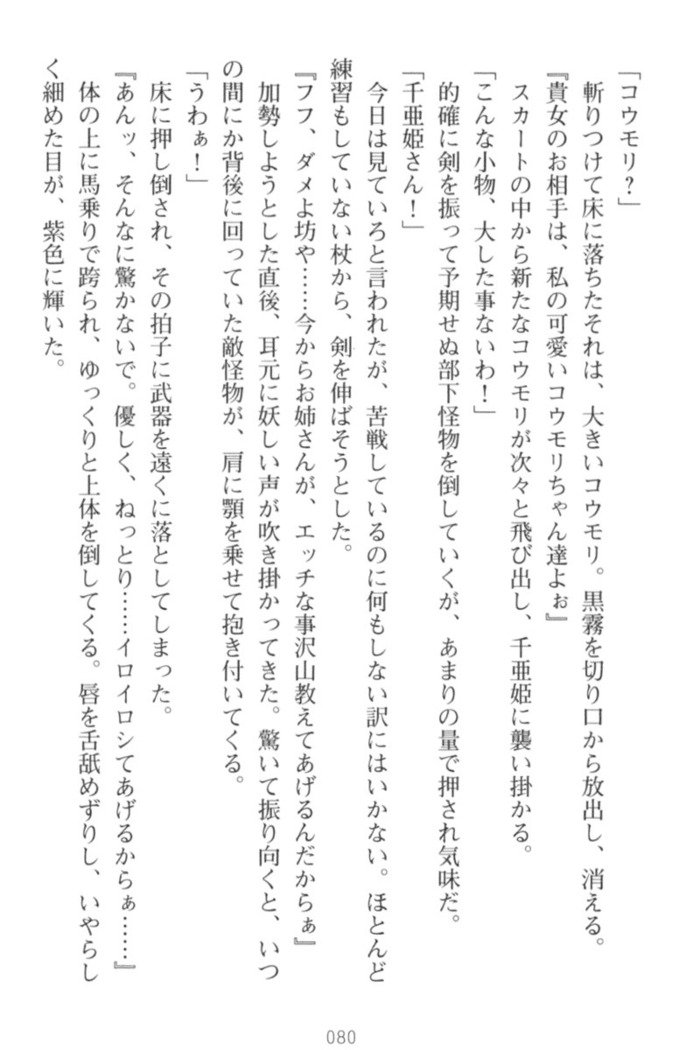 「コウモリ？」
　斬りつけて床に落ちたそれは、大きいコウモリ。黒霧を切り口から放出し、消える。
『貴女のお相手は、私の可愛いコウモリちゃん達よぉ』
　スカートの中から新たなコウモリが次々と飛び出し、千亜姫に襲い掛かる。
「こんな小物、大した事ないわ！」
　的確に剣を振って予期せぬ部下怪物を倒していくが、あまりの量で押され気味だ。
「千亜姫さん！」
　今日は見ていろと言われたが、苦戦しているのに何もしない訳にはいかない。ほとんど
練習もしていない杖から、剣を伸ばそうとした。
『フフ、ダメよ坊や……今からお姉さんが、エッチな事沢山教えてあげるんだからぁ』
　加勢しようとした直後、耳元に妖しい声が吹き掛かってきた。驚いて振り向くと、いつ
の間にか背後に回っていた敵怪物が、肩に顎を乗せて抱き付いてくる。
「うわぁ！」
　床に押し倒され、その拍子に武器を遠くに落としてしまった。
『あんッ、そんなに驚かないで。優しく、ねっとり……イロイロシてあげるからぁ……』
　体の上に馬乗りで跨られ、ゆっくりと上体を倒してくる。唇を舌舐めずりし、いやらし
く細めた目が、紫色に輝いた。
080